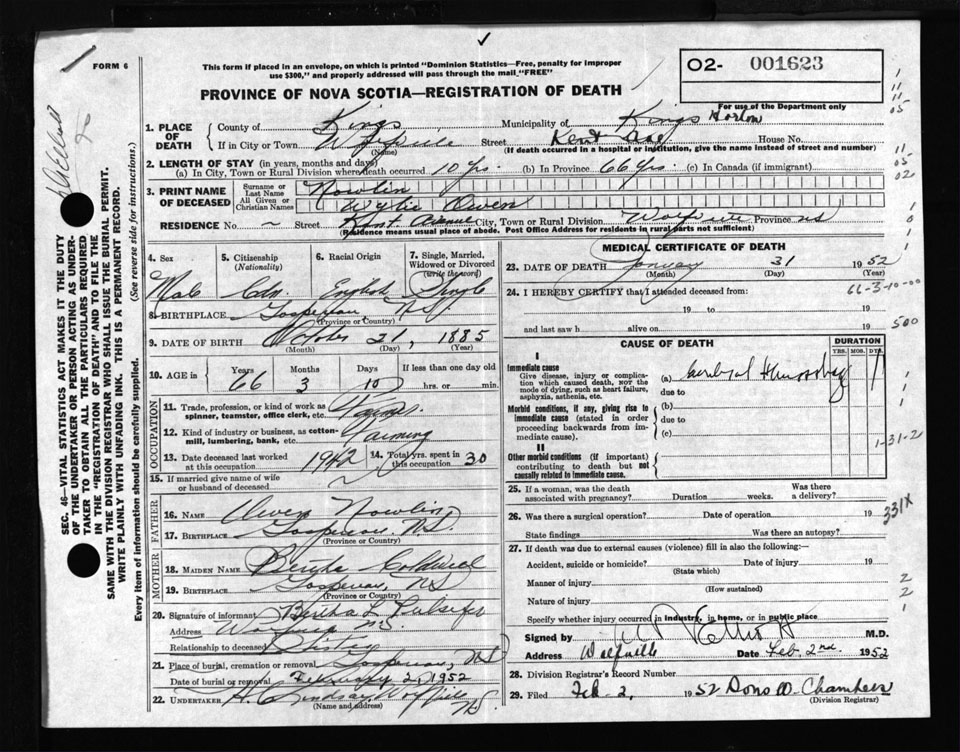 ✓
FORM 6
This form if placed in an envelope, on which is printed "Dominion Statistics—Free, penalty for improper
use $300," and properly addressed will pass through the mail "FREE"
PROVINCE OF NOVA SCOTIA—REGISTRATION OF DEATH
O2- 001623
For use of the Department only
SEC. 46—VITAL STATISTICS ACT MAKES IT THE DUTY
OF THE UNDERTAKER OR PERSON ACTING AS UNDER-
TAKER TO OBTAIN ALL THE PARTICULARS REQUIRED
IN THE "REGISTRATION OF DEATH" AND TO FILE THE
SAME WITH THE DIVISION REGISTRAR WHO SHALL ISSUE THE BURIAL PERMIT.
WRITE PLAINLY WITH UNFADING INK. THIS IS A PERMANENT RECORD.
Every item of information should be carefully supplied. (See reverse side for instructions.)
1. PLACE OF DEATH County of Kings Municipality of Kings Horton
If in City or Town Wolfville (Name) Street Kent Ave House No.
(If death occurred in a hospital or institution, give the name instead of street and number)
2. LENGTH OF STAY (in years, months and days)
(a) In City, Town or Rural Division where death occurred 10 yrs. (b) In Province 66 yrs. (c) In Canada (if immigrant)
3. PRINT NAME OF DECEASED Surname or Last Name Nowlin
All Given or Christian Names Wylie Owen
RESIDENCE No. ~ Street Kent Avenue City, Town or Rural Division Wolfville Province NS
(Residence means usual place of abode. Post Office Address for residents in rural parts not sufficient)
4. Sex Male
5. Citizenship (Nationality) Cdn.
6. Racial Origin English
7. Single, Married, Widowed or Divorced (write the word) Single
8. BIRTHPLACE Gaspereau, N.S. (Province or Country)
9. DATE OF BIRTH October 21, 1885 (Month) (Day) (Year)
10. AGE in Years 66 Months 3 Days 10 If less than one day hrs. or min.
OCCUPATION
11. Trade, profession, or kind of work as spinner, teamster, office clerk, etc. Farmer
12. Kind of industry or business, as cotton-mill, lumbering, bank, etc. Farming
13. Date deceased last worked at this occupation 1942 14. Total yrs. spent in this occupation 30
15. If married give name of wife or husband of deceased ~
FATHER
16. NAME Owen Nowlin
17. BIRTHPLACE Gaspereau N.S. (Province or Country)
MOTHER
18. MAIDEN NAME Bertha Coldwell
19. BIRTHPLACE Gaspereau, NS (Province or Country)
20. Signature of informant Bertha L. Pulsifer
Address Wolfville N.S.
Relationship to deceased Sister
21. Place of burial, cremation or removal Gaspereau, NS
Date of burial or removal February 2, 1952
22. UNDERTAKER H. C. Lindsay Wolfville NS
(Name and address)
MEDICAL CERTIFICATE OF DEATH
23. DATE OF DEATH January 31 1952
(Month) (Day) (Year)
24. I HEREBY CERTIFY that I attended deceased from:
66-3-10-00
19 to 19
and last saw h alive on 19
500
CAUSE OF DEATH
DURATION
YRS. MOS. DYS.
I
Immediate cause
Give disease, injury or complication which caused death, NOT the mode of dying, such as heart failure, asphyxia, asthenia, etc.
(a) Cerebral Hemorrhage 1
due to
Morbid conditions, if any, giving rise to immediate cause (stated in order proceeding backwards from immediate cause).
(b)
due to
(c)
1-31-2
II
Other morbid conditions (if important) contributing to death but not causally related to immediate cause.
25. If a woman, was the death associated with pregnancy? Duration weeks. Was there a delivery?
26. Was there a surgical operation? Date of operation 19
331X
State findings Was there an autopsy?
27. If death was due to external causes (violence) fill in also the following:—
Accident, suicide or homicide? (State which) Date of injury 19
Manner of injury (How sustained)
Nature of injury
Specify whether injury occurred in industry, in home, or in public place
Signed by M.D.
Address Wolfville Date Feb. 2nd. 1952
28. Division Registrar's Record Number
29. Filed Feb. 2, 1952 Doris W. Chambers
(Division Registrar)